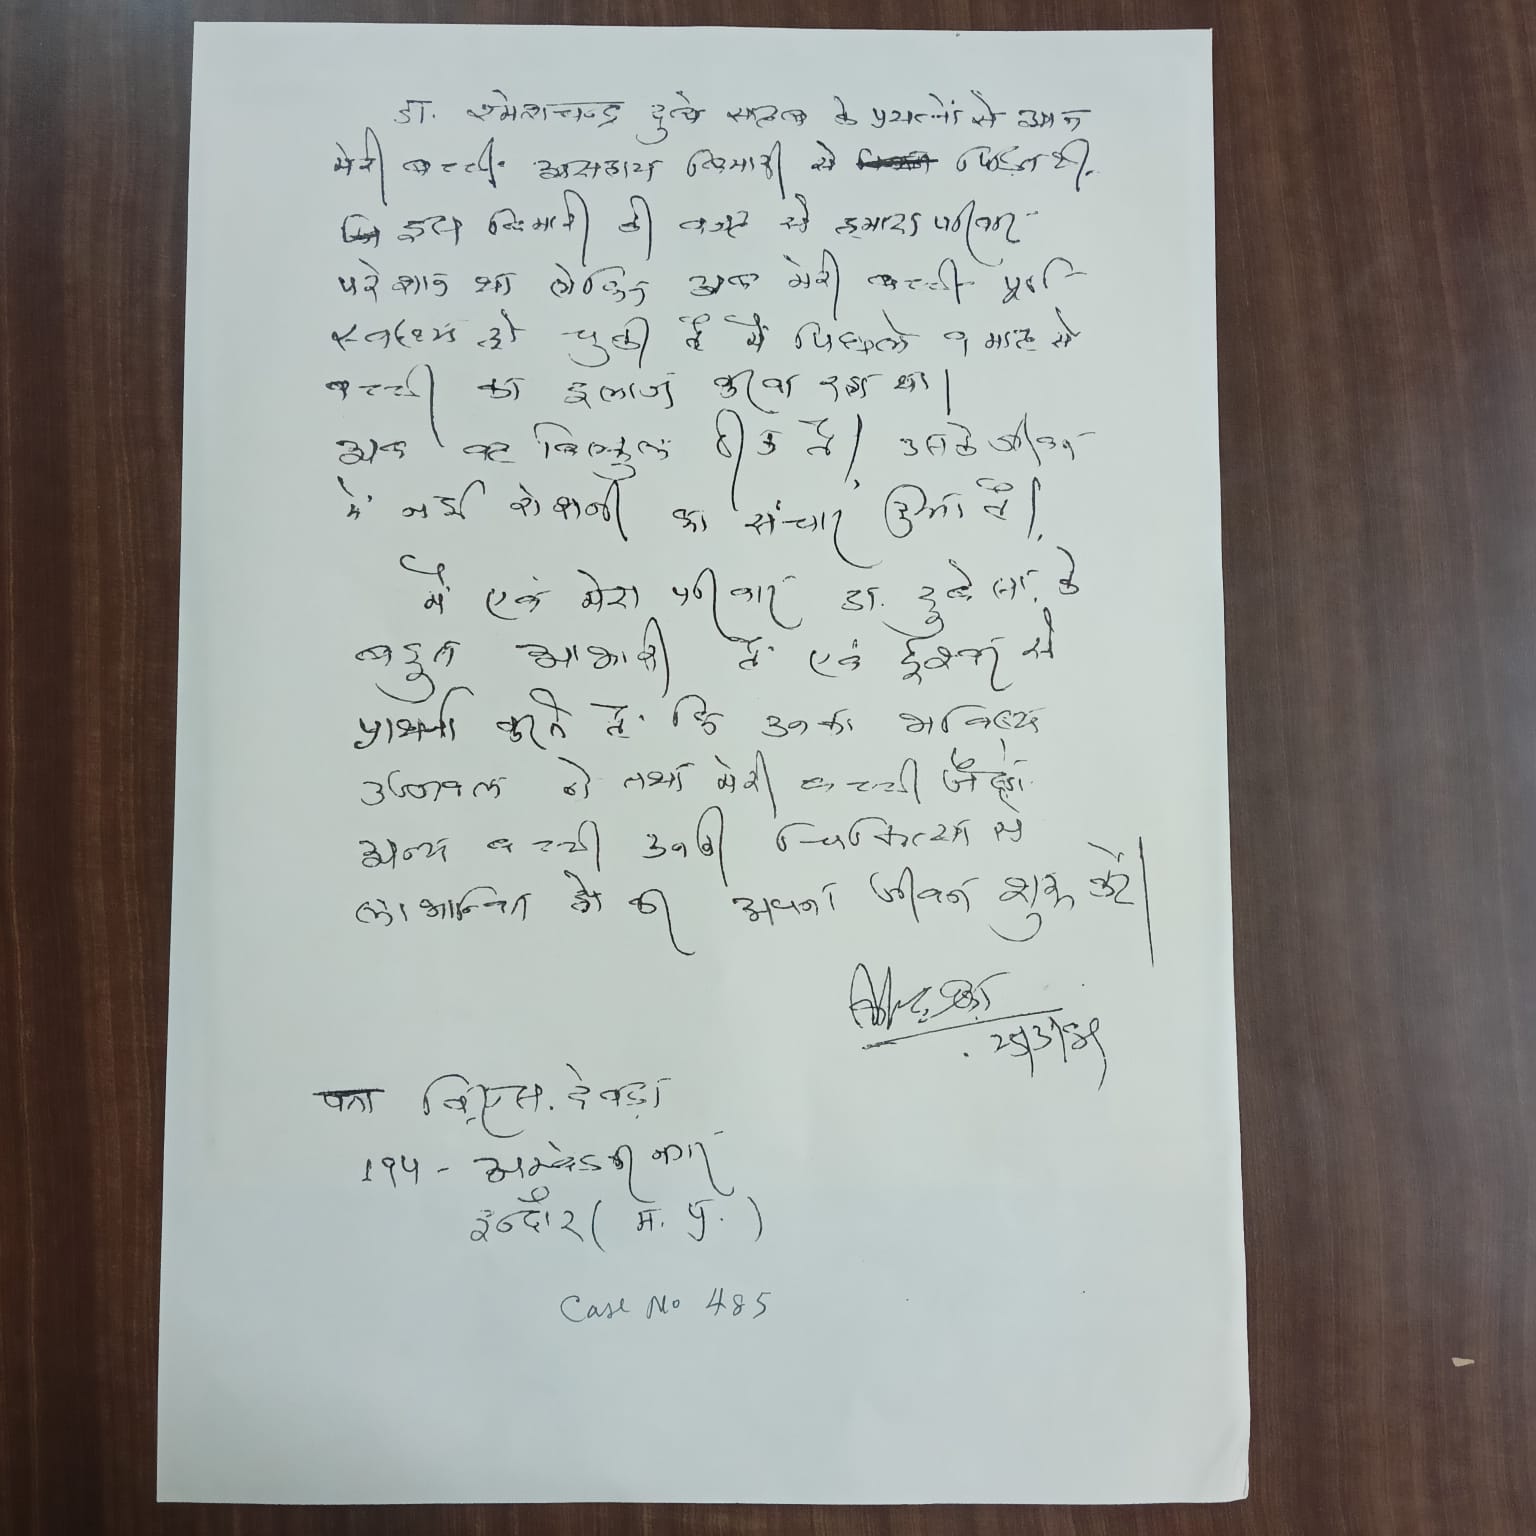 डा. रमेशचन्द्र दुबे साहब के प्रयत्नों से आज
मेरी बच्ची असहाय बिमारी से पिड़ित थी.
इस बिमारी की वजह से हमारा परिवार
परेशान था लेकिन अब मेरी बच्ची पूर्ण
स्वस्थ्य हो चुकी है मैं पिछले ९ माह से
बच्ची का इलाज करवा रहा था।
अब वह बिल्कुल ठीक है। उसके जीवन
में नई रोशनी का संचार हुआ है।
मैं एवं मेरा परिवार डा. दुबे सा. के
बहुत आभारी है एवं ईश्वर से
प्रार्थना करते है कि उनका भविष्य
उज्जवल हो तथा मेरी बच्ची
अन्य बच्ची उनकी चिकित्सा से
लाभान्वित हो कर अपना जीवन शुरू करें।
पता बि.एस. देवड़ा
194 - अम्बेडकर नगर
इन्दौर ( म. प्र. )
Case No 485